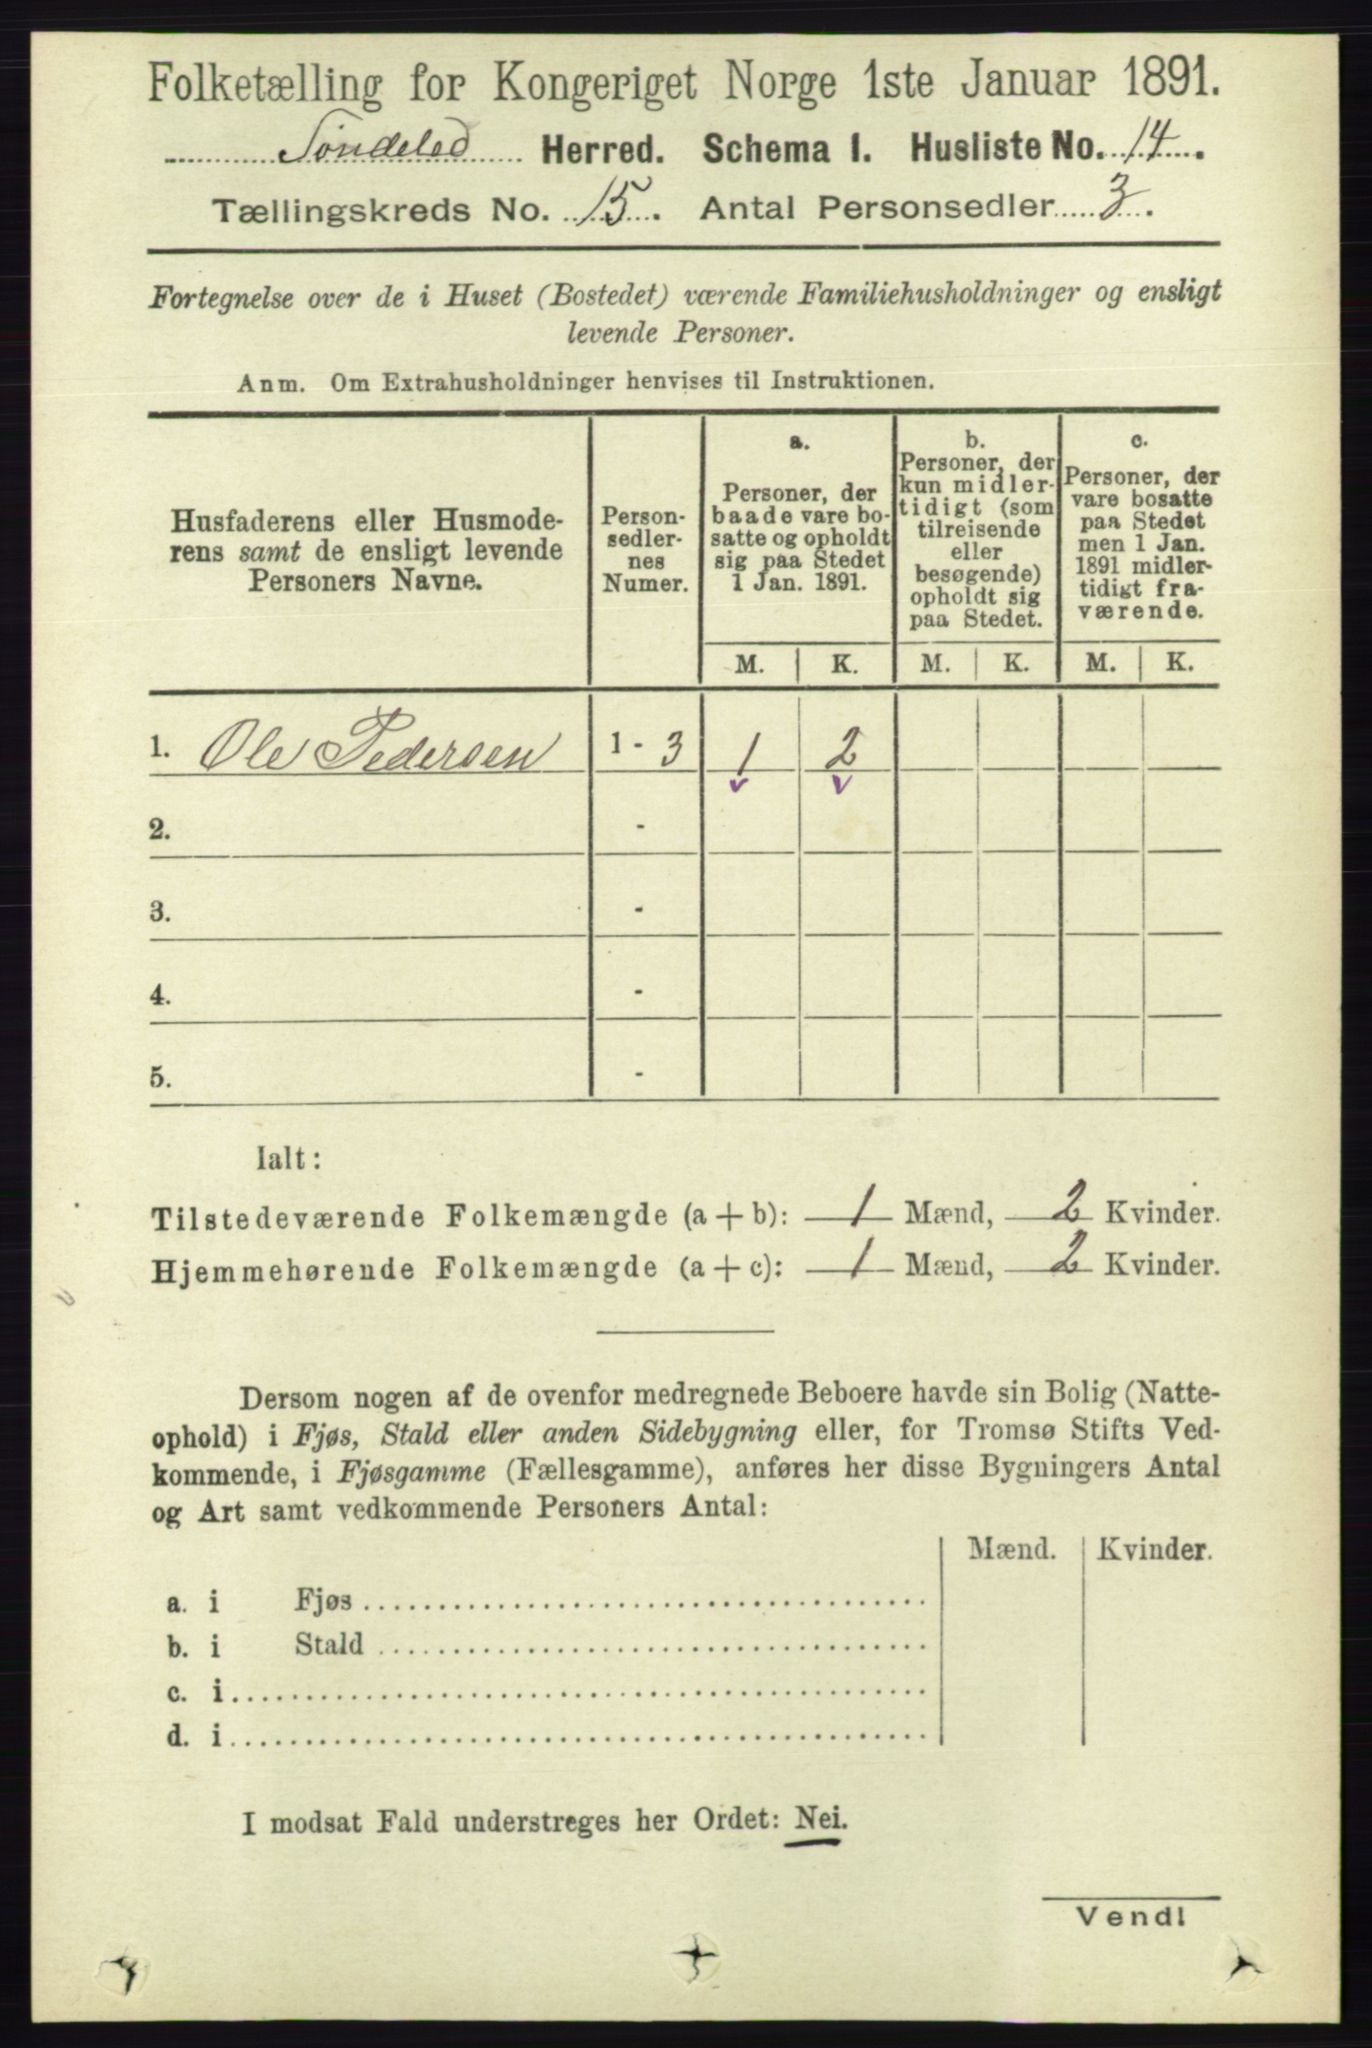 Folketælling for Kongeriget Norge 1ste Januar 1891.
Søndeled Herred. Schema I. Husliste No. 14.
Tællingskreds No. 15. Antal Personsedler 3.
Fortegnelse over de i Huset (Bostedet) værende Familiehusholdninger og ensligt
levende Personer.
Anm. Om Extrahusholdninger henvises til Instruktionen.
Husfaderens eller Husmode-
rens samt de ensligt levende
Personers Navne.
Person-
sedler-
nes
Numer.
a.
Personer, der
baade vare bo-
satte og opholdt
sig paa Stedet
1 Jan. 1891.
b.
Personer, der
kun midler-
tidigt (som
tilreisende
eller
besøgende)
opholdt sig
paa Stedet.
c.
Personer, der
vare bosatte
paa Stedet
men 1 Jan.
1891 midler-
tidigt fra-
værende.
M. K. M. K. M. K.
1. Ole Pedersen 1 - 3 1 2
2. -
3. -
4. -
5. -
Ialt:
Tilstedeværende Folkemængde (a + b): 1 Mænd, 2 Kvinder.
Hjemmehørende Folkemængde (a + c): 1 Mænd, 2 Kvinder.
Dersom nogen af de ovenfor medregnede Beboere havde sin Bolig (Natte-
ophold) i Fjøs, Stald eller anden Sidebygning eller, for Tromsø Stifts Ved-
kommende, i Fjøsgamme (Fællesgamme), anføres her disse Bygningers Antal
og Art samt vedkommende Personers Antal:
Mænd. Kvinder.
a. i Fjøs
b. i Stald
c. i
d. i
I modsat Fald understreges her Ordet: Nei.
Vend!